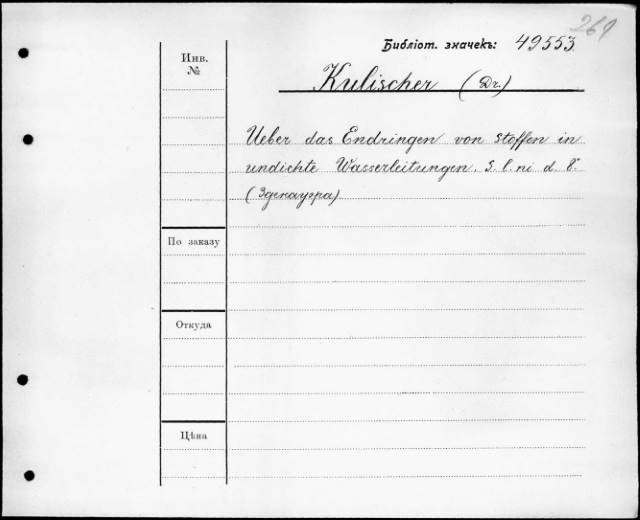 269
Библіот. значекъ: 49553
Инв.
№
Kulischer (Dr.)
Ueber das Endringen von Stoffen in
undichte Wasserleitungen. S. l. ni d. 8°.
(3 декаугра)
По заказу
Откуда
Цѣна